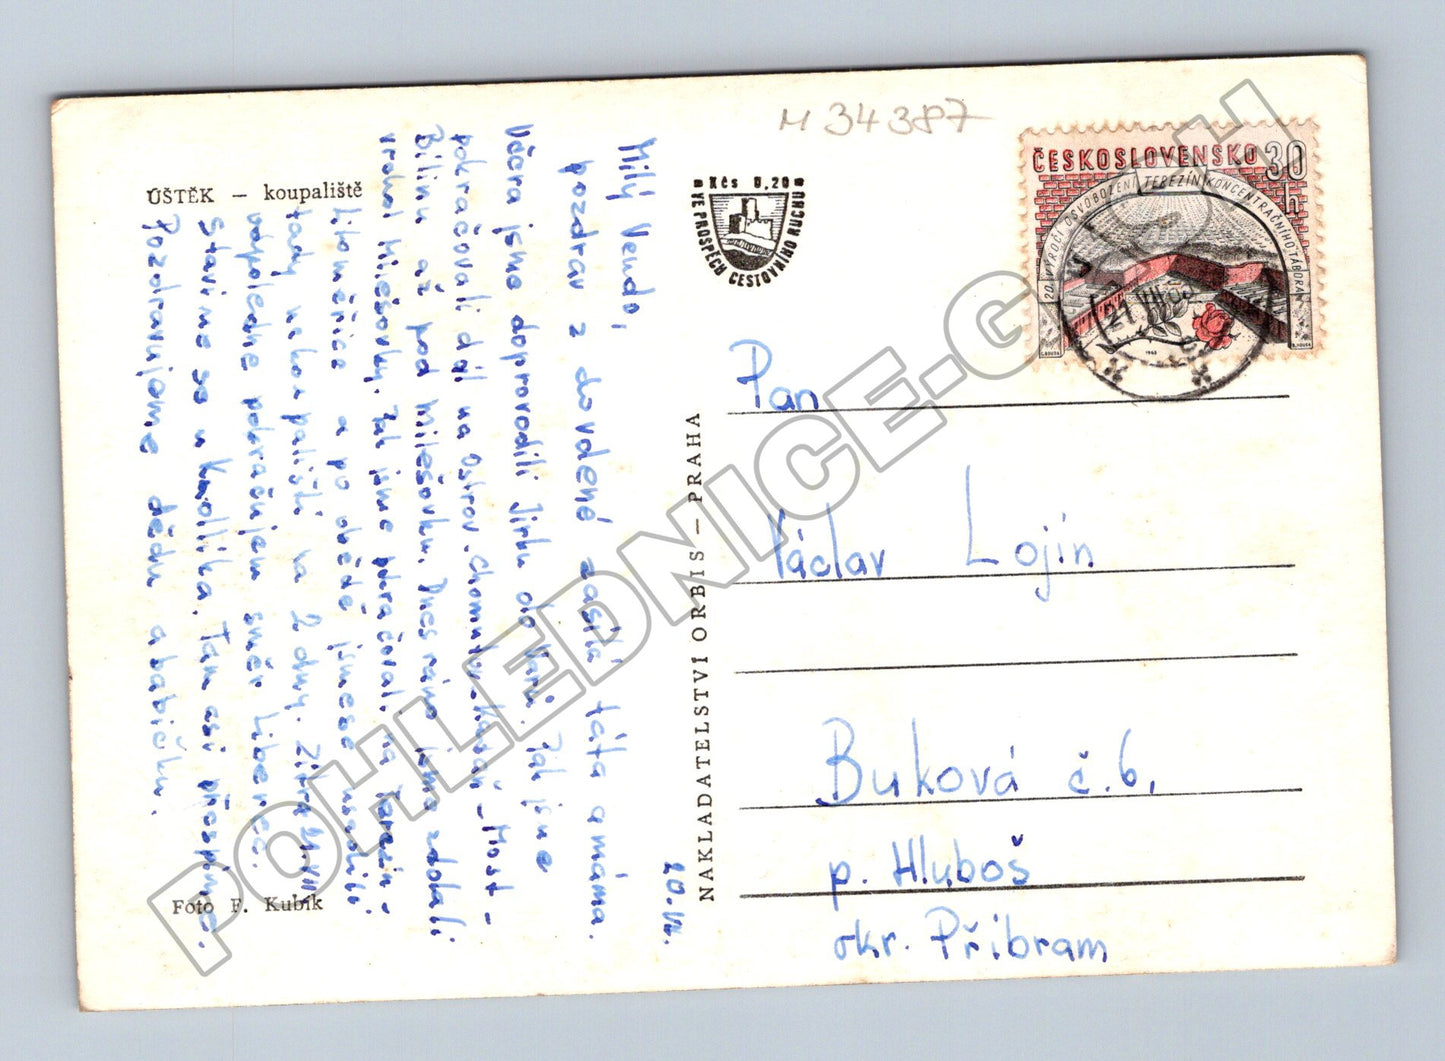 M 34387
ÚŠTĚK – koupaliště
Kčs 0,20
VE PROSPĚCH CESTOVNÍHO RUCHU
ČESKOSLOVENSKO 30 h
20. VÝROČÍ OSVOBOZENÍ TEREZÍN KONCENTRAČNÍHO TÁBORA
1965
Milý Vendo,
pozdrav z dovolené zasílá táta a máma.
Včera jsme doprovodili Jirku do Varů. Pak jsme
pokračovali dál na Ostrov - Chomutov - Kadaň - Most -
Bílinu až pod Milešovku. Dnes ráno jsme zdolali
vrchol Milešovky. Pak jsme pokračovali na Terezín -
Litoměřice a po obědě jsme se usadili
tady na koupališti na 2 dny. Zítra 21.VII.
odpoledne pokračujem směr Liberec.
Stavíme se u Knollíka. Tam asi přespíme.
Pozdravujeme dědu a babičku.
20.VII.
Foto F. Kubík
NAKLADATELSTVÍ ORBIS – PRAHA
Pan
Václav Lojín
Buková č. 6,
p. Hluboš
okr. Příbram
POHLEDNICE.GURH